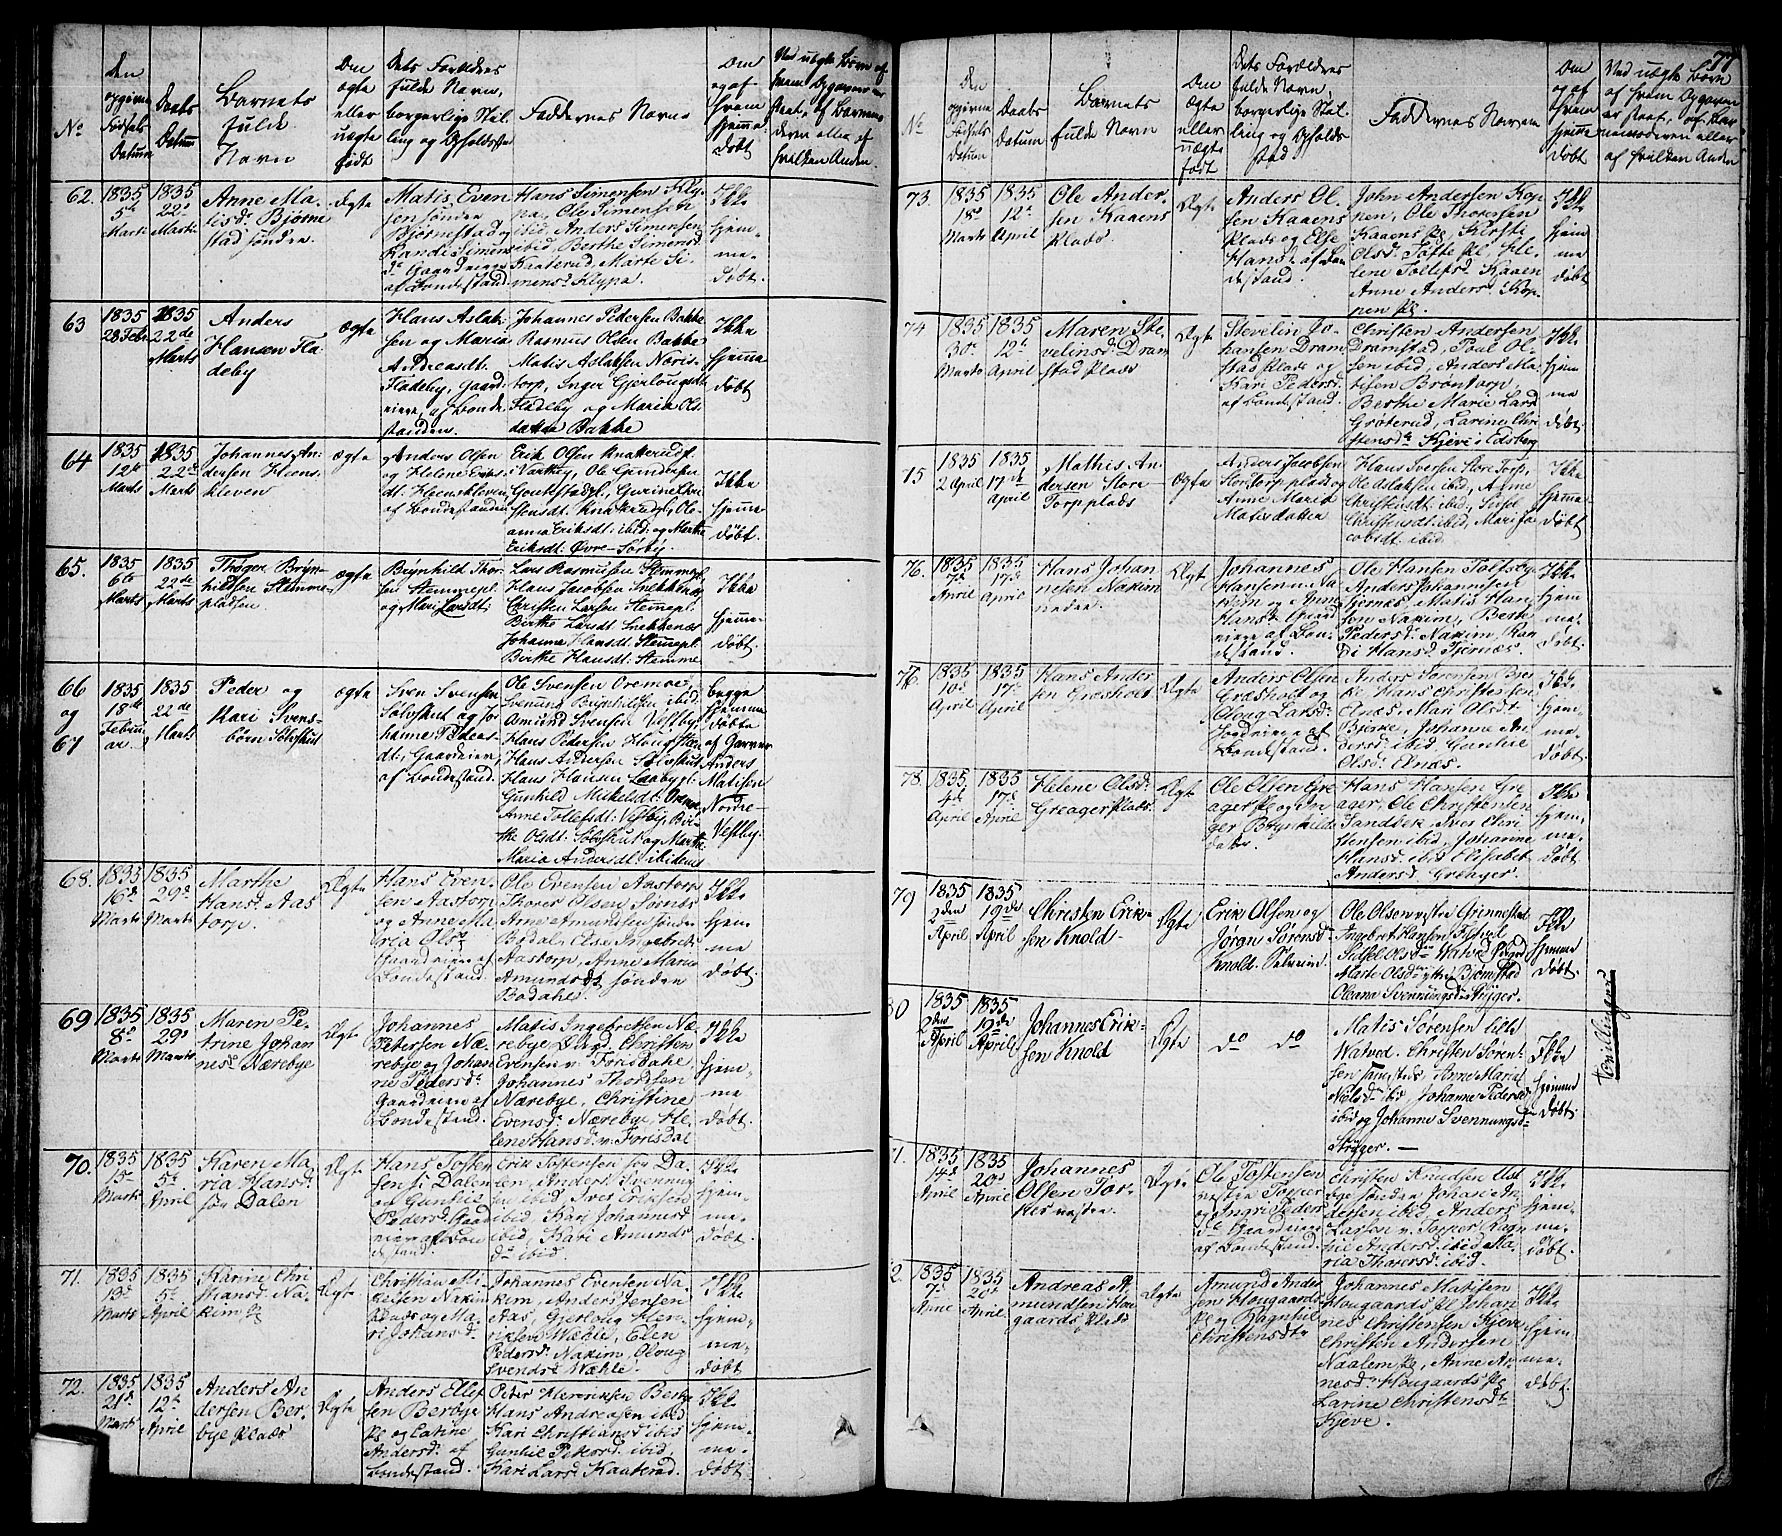 No
den
opgivne
Fødsels
Datum
Daabs
Datum
Barnets
fulde
Navn
Om
ægte
eller
uægte
født
Dets Forældres
fulde Navn,
borgerlige Stil-
ling og Opholdssted
Faddernes Navne
Om
og af
hvem
hjemme-
døbt
62.
1835
5te
Marti
1835
22de
Marti
Anne Ma-
tisd. Bjørne
stad søndre.
Ægte
Matis Even
sen søndre
Bjørnestad og
Randi Simens
dr. Gaardmænd
af Bondestand.
Hans Simensen Kly-
pa, Ole Simensen
ibid, Anders Simensen
ibid, Berthe Simensd.
Kaaterud, Marte Si-
mensd. Klypa.
Ikke
hjem-
me-
døbt.
63
1835
28 Febr.
1835
22de
Marts
Anders
Hansen Fla-
deby
Ægte
Hans Aslak-
sen og Maria
Andreasdt.
Fladeby, Gaard-
mænd, af Bonde
standen.
Johannes Pedersen Bakke
Rasmus Olsen Bakke
Matis Aslaksen Nøris-
torp, Inger Gjerlougsdt.
Fladeby og Maria Ols-
datter Bakke
Ikke
hjemme
døbt
64
1835
12te
Marts
1835
22de
Marts
Johannes An-
dersen Hans-
kleven
ægte
Anders Olsen
og Helene Eriks
dt. Hanskleven
af Bondestanden
Erik Olsen Knatterudf.
Ikke
hjemme
døbt.
65.
1835
6te
Marts
1835
22de
Marts
Thøger Bryn-
hildsen Stemme-
pladsen.
ægte
Brynhild Thor-
sen Stemmepl.
og Mari Larsdt:
Lars Rasmusen Stemmepl.
Hans Jacobsen Snekkenæs
Christen Larsen Stemmepl.
Birthe Larsdt. Snekkenæs
Johanne Hansdt: Stemmepl.
Birthe Hansdt: Stemme
Ikke
hjemme-
døbt.
66
og
67
1835
18de
Febru-
ar.
1835
22de
Marts
Peder og
Kari Svens-
børn Sølvskut
ægte
Sven Svensen
Sølvskut og Jo-
hanne Peders-
dt., Gaardmænd,
af Bondestand.
Ole Svensen Oremoe,
Svenung Brynhildsen ibid.
Amund Svensen Vestby,
Hans Andersen Sølvskut
Gunhild Mickelsdt: Oremoe
Anne Tollefsdt: Vestby, Bir-
the Olsdt: Sølvskut og Marthe
Maria Andersdt. ibidems
begge
hjemme
døbte
af Garver
Anders
Matisen
Nordre-
Vestby.
68.
1835
16de
Marts
1835
29de
Marts
Marthe
Hansd. Aas
torp.
Ægte
Hans Even-
sen Aastorp
og Anne Ma-
ria Olsdr.
Gaardmænd af
Bondestand.
Ole Evensen Aastorp
Thorer Olsen Sørnæs
Arne Amundsen søndre
Bodahl, Else Ingebretsd.
Aastorp, Anne Marie
Amundsdt. søndre
Bodahl.
Ikke
hjem
me
døbt.
69
1835
8de
Marts
1835
29de
Marts
Maren Pe-
trine Johan
nesd. Nærebye
Ægte
Johannes
Petersen Næ-
rebye og Johan
ne Pedersdr.
Gaardmænd af
Bondestand.
Matis Ingebretsen Næ-
rebye Eier, Christen
Evensen v. Forisdahl,
Johannes Thordsen
Nærebye, Christine
Evensd. Nærebye, He-
lene Hansd. v. Forisdal
Ikke
hjem-
me
døbt.
70.
1835
15de
Marts
1835
5te
April
Karen Ma-
ria Hansd.
sør Dalen
Ægte
Hans Tosten
sen s. Dalen
og Gunhil
Pedersd. Gaard
mænd af Bon
destand
Erik Tostensen sør Da-
len, Anders Svenung-
sen ibid, Iver Eriksen
ibid, Kari Johannesd
ibid, Kari Amunds
dr. ibid
Ikke
hjem-
me-
døbt.
71.
1835
13de
Marts
1835
5te
April
Karine Chri-
stiansd. Na-
kim Pl
Ægte
Christian Mi-
kelsen Nakim
Plads og Ma-
ri Johansd.
Johannes Evensen Na-
kim, Anders Jensen
Aas, Gjerloug Hen-
riksen Wæhle, Elen
Pedersd. Nakim, Oloug
Svendsd. Wæhle.
Ikke
hjem-
me-
døbt
72.
1835
21de
Marts
1835
12te
April
Anders An-
dersen Ber-
bye Plads
Ægte
Anders Ellef
sen Berbye
Pl og Catrine
Andersd. af
Bondestand.
Peter Henriksen Berby
Hans Andreasen ibid
Kari Christiansd ibid
Gunhil Petersd. ibid,
Kari Larsd Kaaterud.
Ikke
hjem-
me-
døbt
77
No
den
opgivne
Fødsels
Datum
Daabs
Datum
Barnets
fulde Navn
Om
Ægte
eller
uægte
født
Dets Forældres
fulde Navn,
borgerlige Stil-
ling og Opholds
sted
Faddernes Navne
Om
og af
hvem
hjemme
døbt
Ved uægte Børn
af hvem Opgaven
er skeet, af Bar-
nemoderen eller
af hvilken Anden
73.
1835
18de
Marts
1835
12te
April
Ole Ander-
sen Kaaens
Plads.
Ægte
Anders Ol-
sen Kaaens
Plads og Else
Hansd. af Bon
destand.
John Andersen Kop-
pen, Ole Thoresen
Kaaens Pl, Kirsti
Olsd. Tofte Pl, He-
lene Tollefsd. Kaaen
Anne Andersd. Kop-
pen Pl.
Ikke
hjem
me
døbt.
74
1835
30te
Marts
1835
12te
April
Maren Ste-
velinsd. Dram
stad Plads
Ægte
Stevelin Jo-
hansen Dram
stad Plads og
Kari Pedersd.
af Bondestand.
Christen Andersen
Dramstad, Poul Ol-
sen ibid, Anders Ma-
tisen Brøntorp,
Berthe Marie Larsd
Grøterud, Larine Chri-
stensdr. Kjeve i Edsberg
Ikke
hjem
me
døbt.
75
1835
2 April
1835
17de
April
Mathis An-
dersen Store
Torp plads
Ægte
Anders Jacobsen
Store Torp plads og
Anne Maria
Matisdatter
Hans Iversen Store Torp,
Ole Aslaksen ibid, Anne
Christensdt ibid, Sidsel
Christensdt: ibid, Mari Ja-
cobsdt ibid.
Ikke
hjemme
døbt.
76.
1835
7de
April
1835
17de
April
Hans Johan
nesen Nakim
nedre.
Ægte
Johannes
Hansen n. Na-
kim og Anne
Hansd. Gaard
mænd af Bon-
destand.
Ole Hansen Tolfsbye
Anders Johannesen
Tjernæs, Matis Han-
sen Nakim, Berte
Pedersd. Nakim, Ran
di Hansd. Tjernæs.
Ikke
hjem
me-
døbt.
77.
1835
10de
April
1835
17de
April
Hans Ander-
sen Græsholt
Ægte
Anders Olsen
Græsholt og
Oloug Larsd.
Jordmænd af
Bondestand.
Anders Sørensen Bjer-
ke, Hans Christensen
Elnæs, Mari Olsdt
Bjerke, Johanne An-
dersd. ibid Gunhil
Olsd. Elnæs.
Ikke
hjem-
me
døbt.
78.
1835
4de
April
1835
17de
April
Helene Olsd.
Greager Plads.
Ægte
Ole Olsen Gre
ager Pl og In-
ger Brynhilds
datter.
Hans Hansen Gre
ager, Ole Christensen
Sandbek, Iver Chri-
stensen ibid, Johanne
Hansd. ibid Elisabet
Andersd. Greager.
Ikke
hjem-
me-
døbt.
79
1835
2den
April
1835
19de
April
Christen Erik-
sen Knold.
Ægte
Erik Olsen og
Jørgn Sørensd.
Knold. Selveier.
Ole Olsen vestre Grinnestad
Ingebret Hansen
Oleana Svennungsd. Stryger.
Ikke
hjemme
døbt.
80
1835
2den
April
1835
19de
April
Johannes Erik-
sen Knold
Ægte
do do
Matis Sørensen lille
Watvet. Christen Sørent-
sen Tangestad, Anne Maria
Nielsd. ibid, Johanne Pedersd.
ibid og Johanne Svennungsd.
Stryger. —
Ikke
hjemme
døbt.
Tvillinger
1.
1835
14de
April
1835
20de
April
Johannes
Olsen Tor-
per vestre.
Ægte
Ole Tostensen
vestre Torper
og Ingri Peders
dr. Gaardmænd
af Bondestand.
Christen Knudsen Ust
bye søndre Johan An
dersen ibid, Anders
Larsen v. Torper Ragn
hil Andersd. ibid Ma-
ria Thorersd. ibid.
Ikke
hjem-
me
døbt.
2.
1835
7de
1835
20de
April
Andreas A-
mundsen Hou-
gaards Plads
Ægte
Amund Ander
sen Hougaards
Pl og Ragnhil
Christensdtr
Johannes Matisen
Hougaards Pl Johan
nes Christensen Kjeve
Christen Andersen
Naalem Pl, Anne An-
nesdr. Hougaards Pl
Larine Christensdr.
Kjeve.
Ikke
hjem-
me-
døbt.